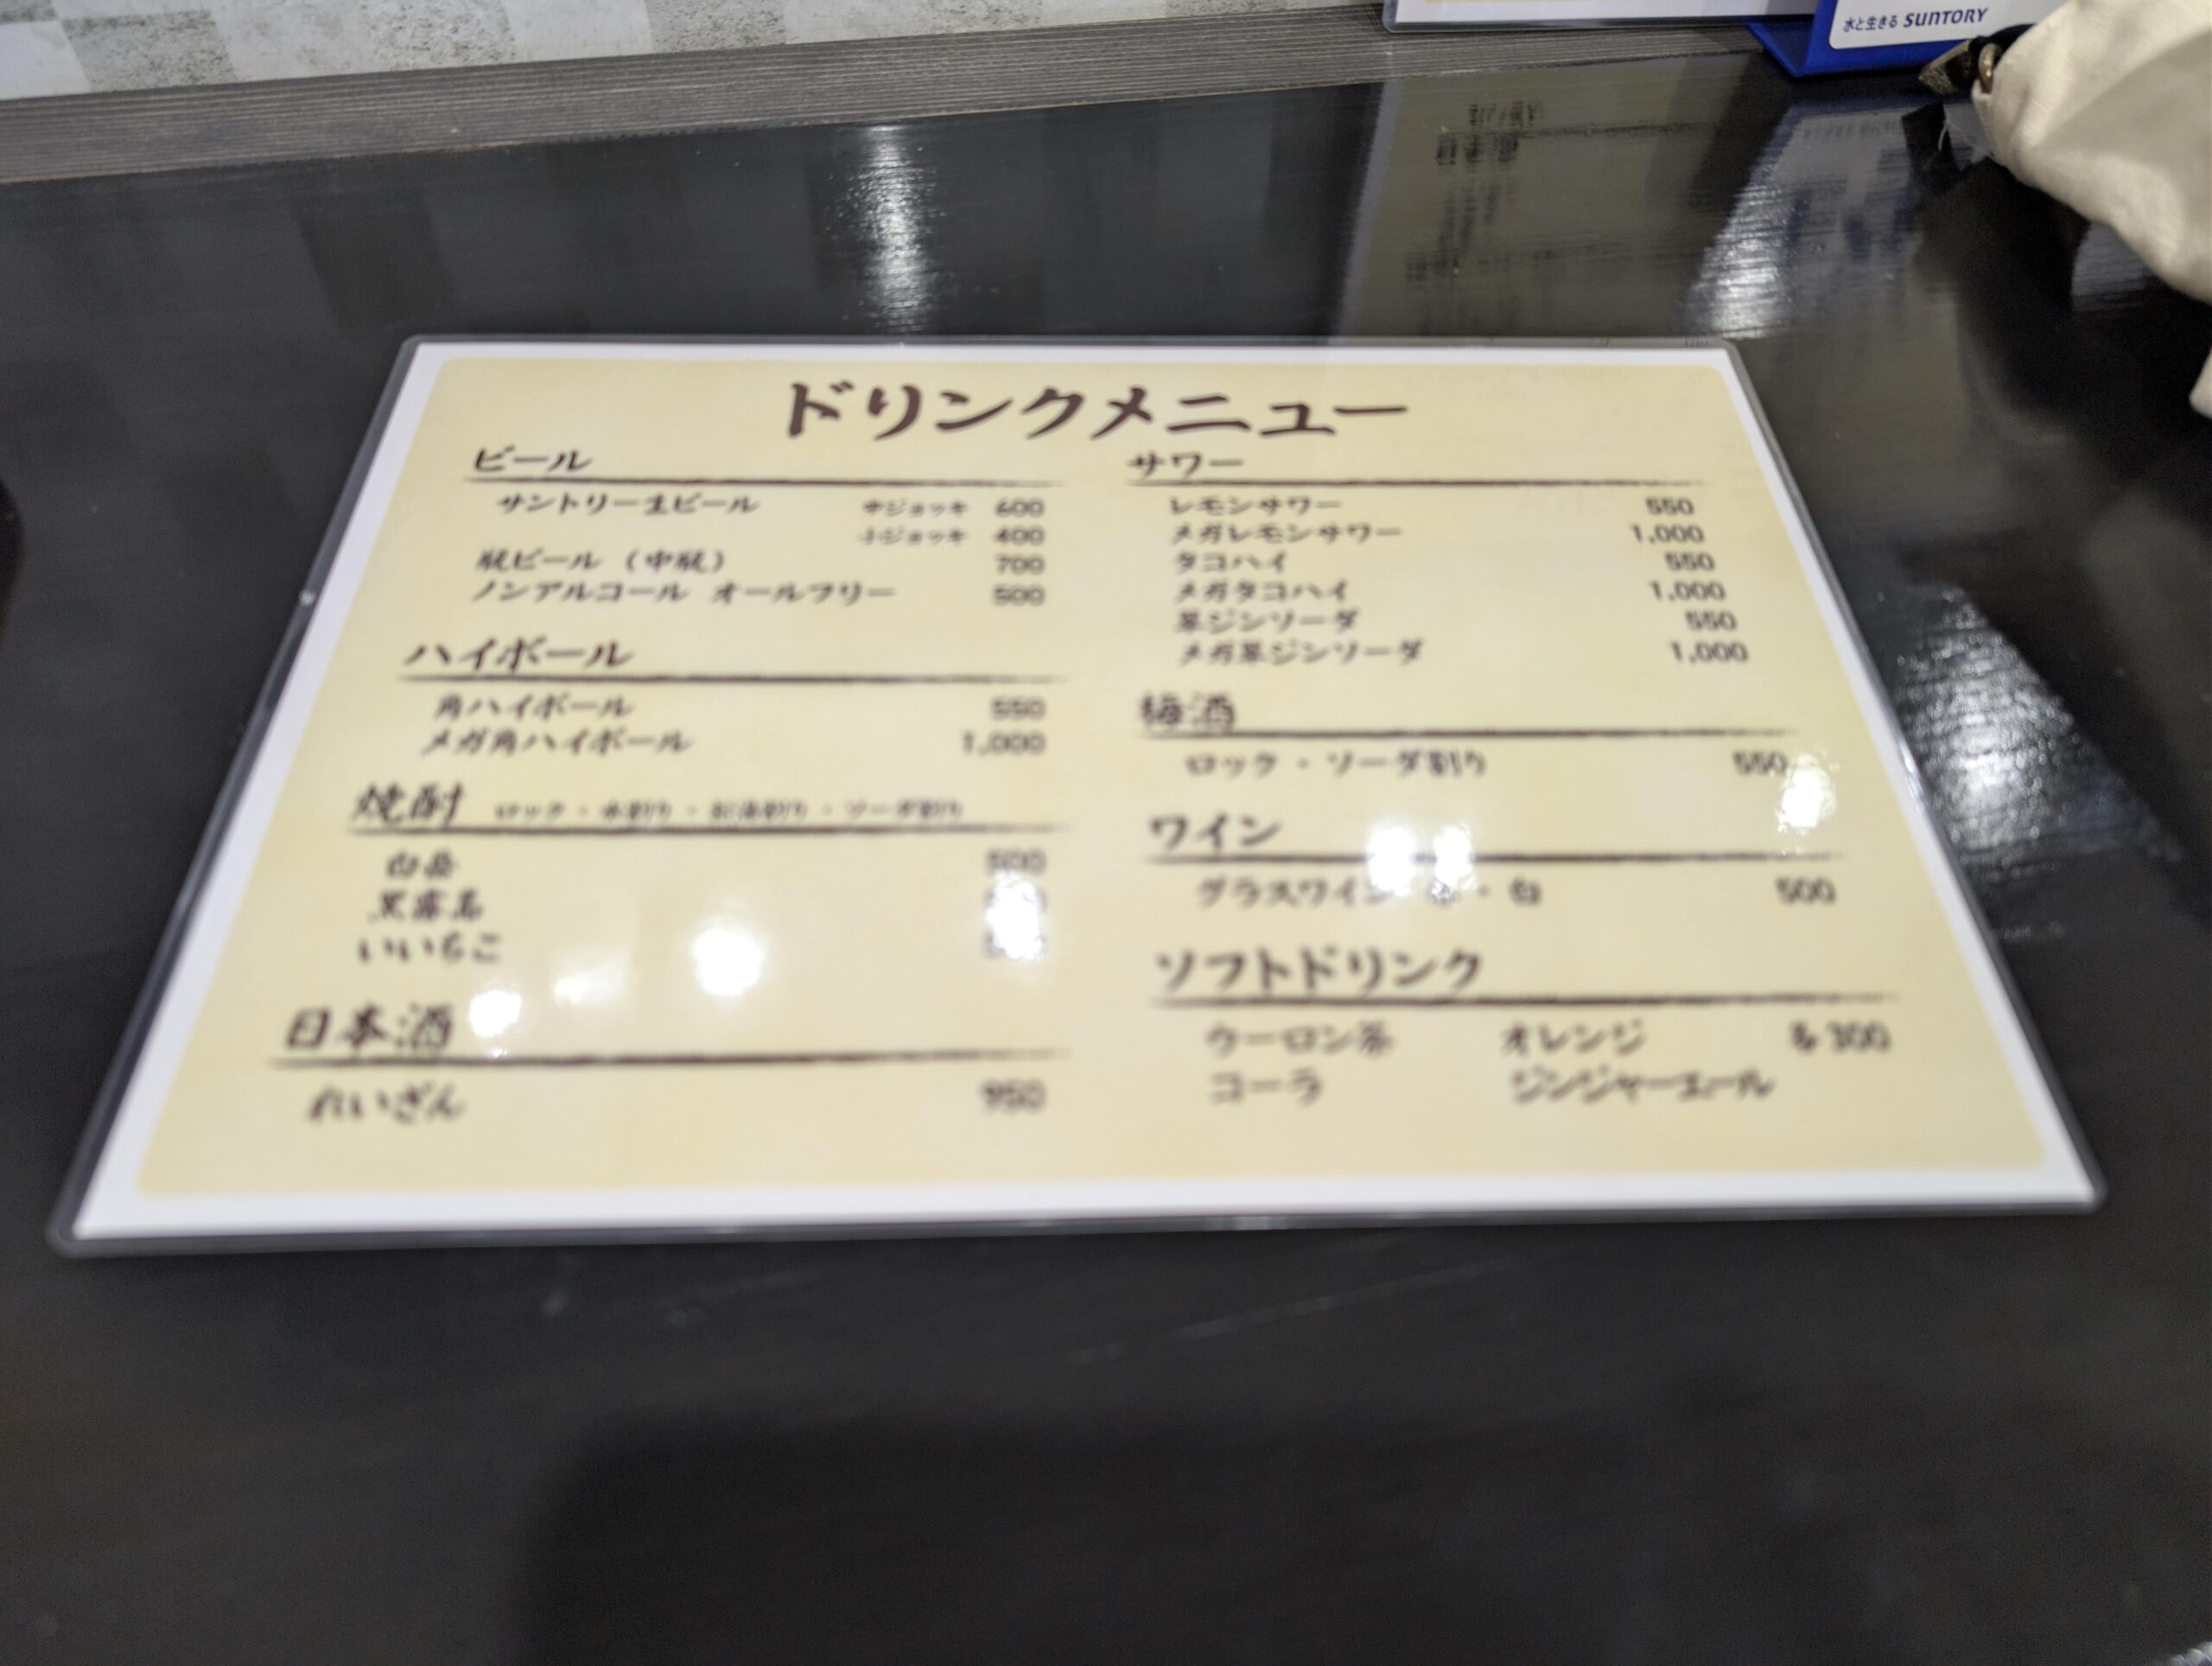 水と生きる SUNTORY
ドリンクメニュー
ビール
サントリー生ビール 中ジョッキ 600
小ジョッキ 400
瓶ビール (中瓶) 700
ノンアルコール オールフリー 500
ハイボール
角ハイボール 550
メガ角ハイボール 1,000
焼酎 ロック・水割り・お湯割り・ソーダ割り
白岳 500
黒霧島
いいちこ
日本酒
れいざん 950
サワー
レモンサワー 550
メガレモンサワー 1,000
タコハイ 550
メガタコハイ 1,000
翠ジンソーダ 550
メガ翠ジンソーダ 1,000
梅酒
ロック・ソーダ割り 550
ワイン
グラスワイン 赤・白 500
ソフトドリンク
ウーロン茶 オレンジ 各300
コーラ ジンジャーエール